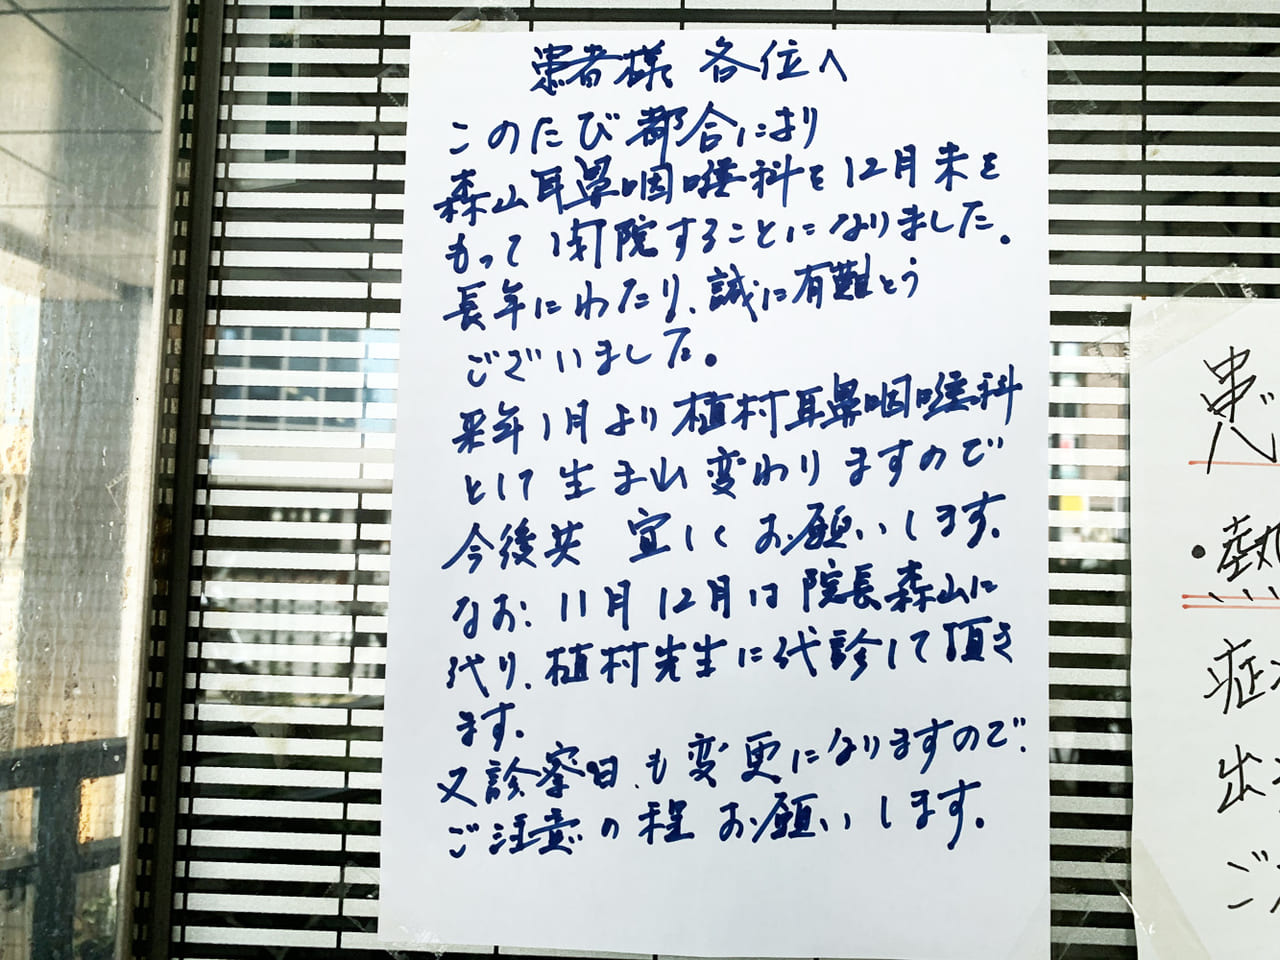 患者様 各位へ
このたび都合により
森山耳鼻咽喉科を12月末を
もって閉院することになりました。
長年にわたり、誠に有難とう
ございました。
来年1月より植村耳鼻咽喉科
として生まれ変わりますので
今後共 宜しくお願いします。
なお、11月12月は院長森山に
代り、植村先生に代診して頂き
ます。
又診察日も変更になりますので、
ご注意の程お願いします。
患
・熱
症
出
ご